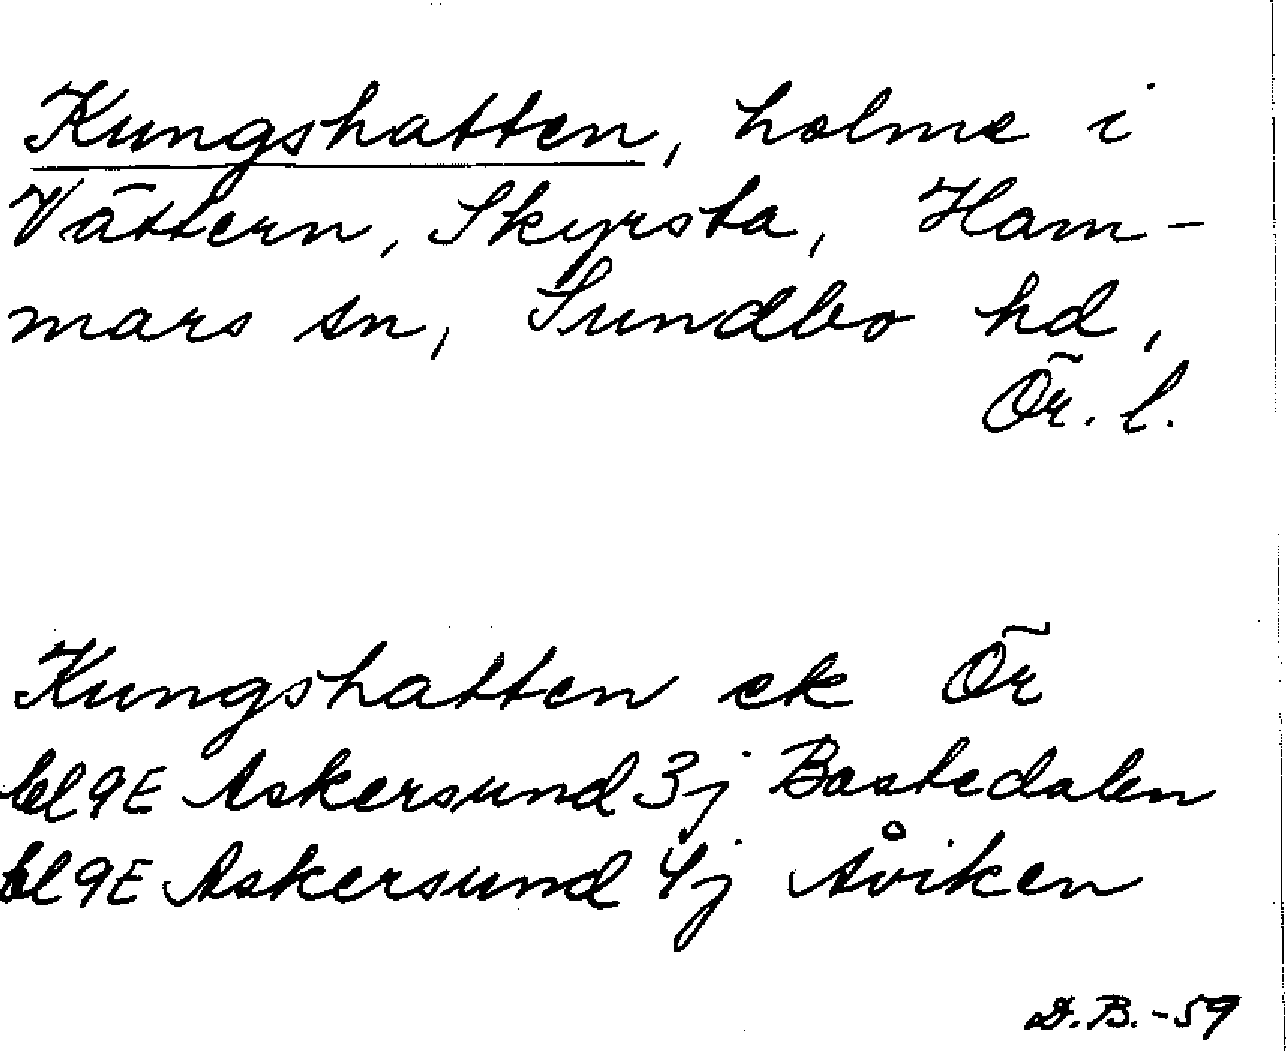 Kungshatten, holme i
Vättern, Skyrsta, Ham-
mars sn, Sundbo hd,
Ör. l.
Kungshatten ek Ör
bl 9E Askersund 3j Bastedalen
bl 9E Askersund 4j Åviken
D.B.-59